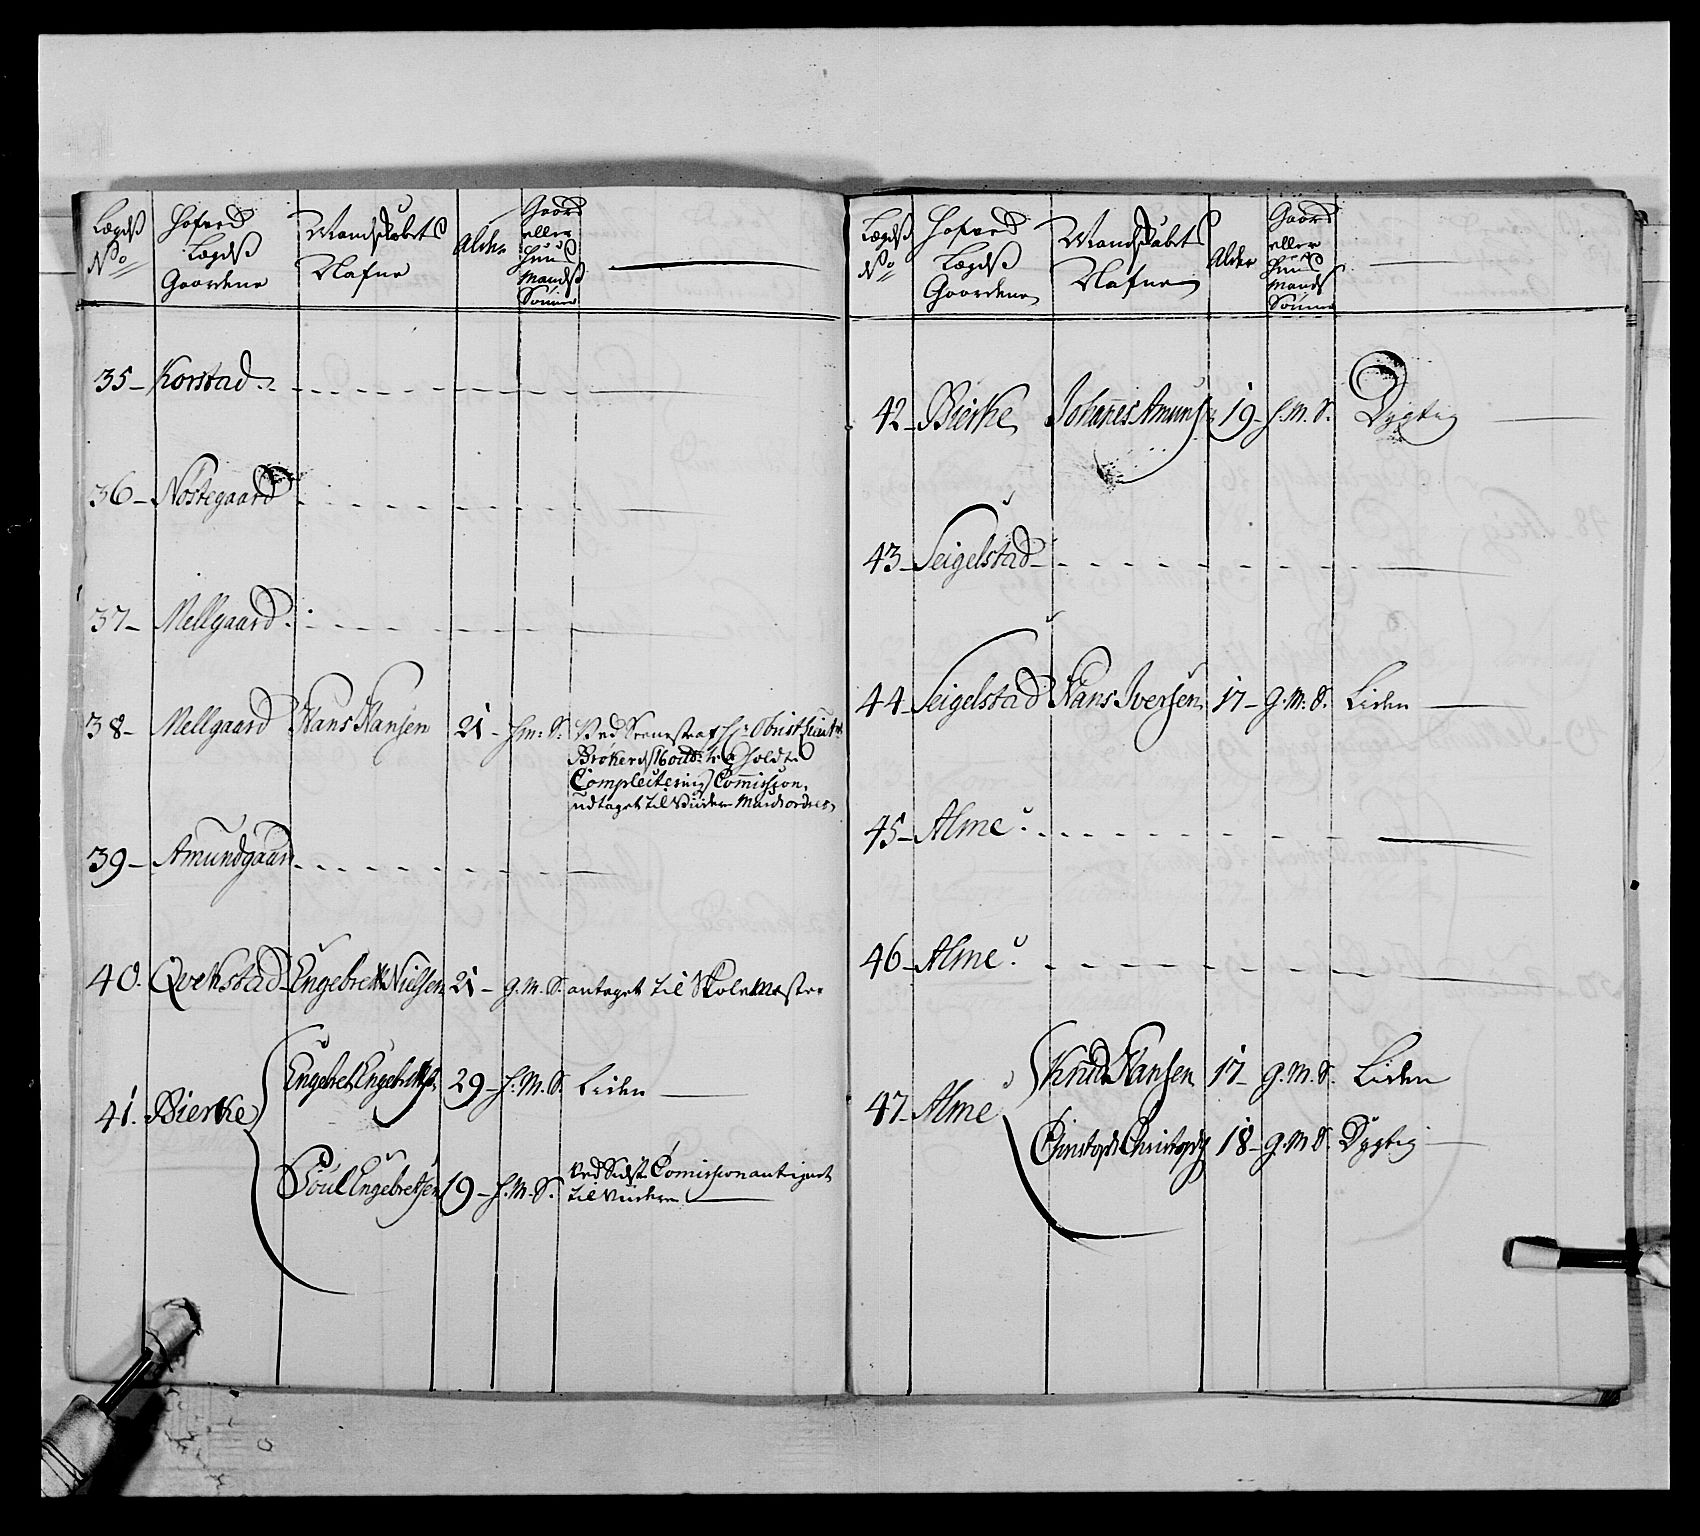 Lægds No | Hofved Lægds Gaardene | Mandskabets Nafne | Alder | Gaard eller Huus Mands Sönner
35 - Korstad
36 - Nostegaard
37 - Mellgaard
38 - Mellgaard | Hans Hansen | 21 - | H.M.S. | Ved Seeneste af Hr. Obrist Lieut.
Compleitering Commission
udtaget til
39 - Amundgaard
40. Qvekstad | Engebret Nielsen | 21 - | G.M.S. | antaget til Skolemester
41. Bierke | Engebret Engebretsen | 29 - | H.M.S. | Liden
Poul Engebretsen | 19 - | H.M.S. | Ved Sidste Comission antegnet
til
Lægds No | Hofved Lægds Gaardene | Mandskabets Nafne | Alder | Gaard eller Huus Mands Sönner
42 - Bierke | Johannes Amunds: | 19 - | H.M.S. | Dygtig
43 - Seigelstad
44 - Seigelstad | Hans Iversen | 17 - | G.M.S. | Liden
45 - Alme
46 - Alme
47 - Alme | Knud Hansen | 17 - | G.M.S. | Liden
Christoph Christophs | 18 - | G.M.S. | Dygtig